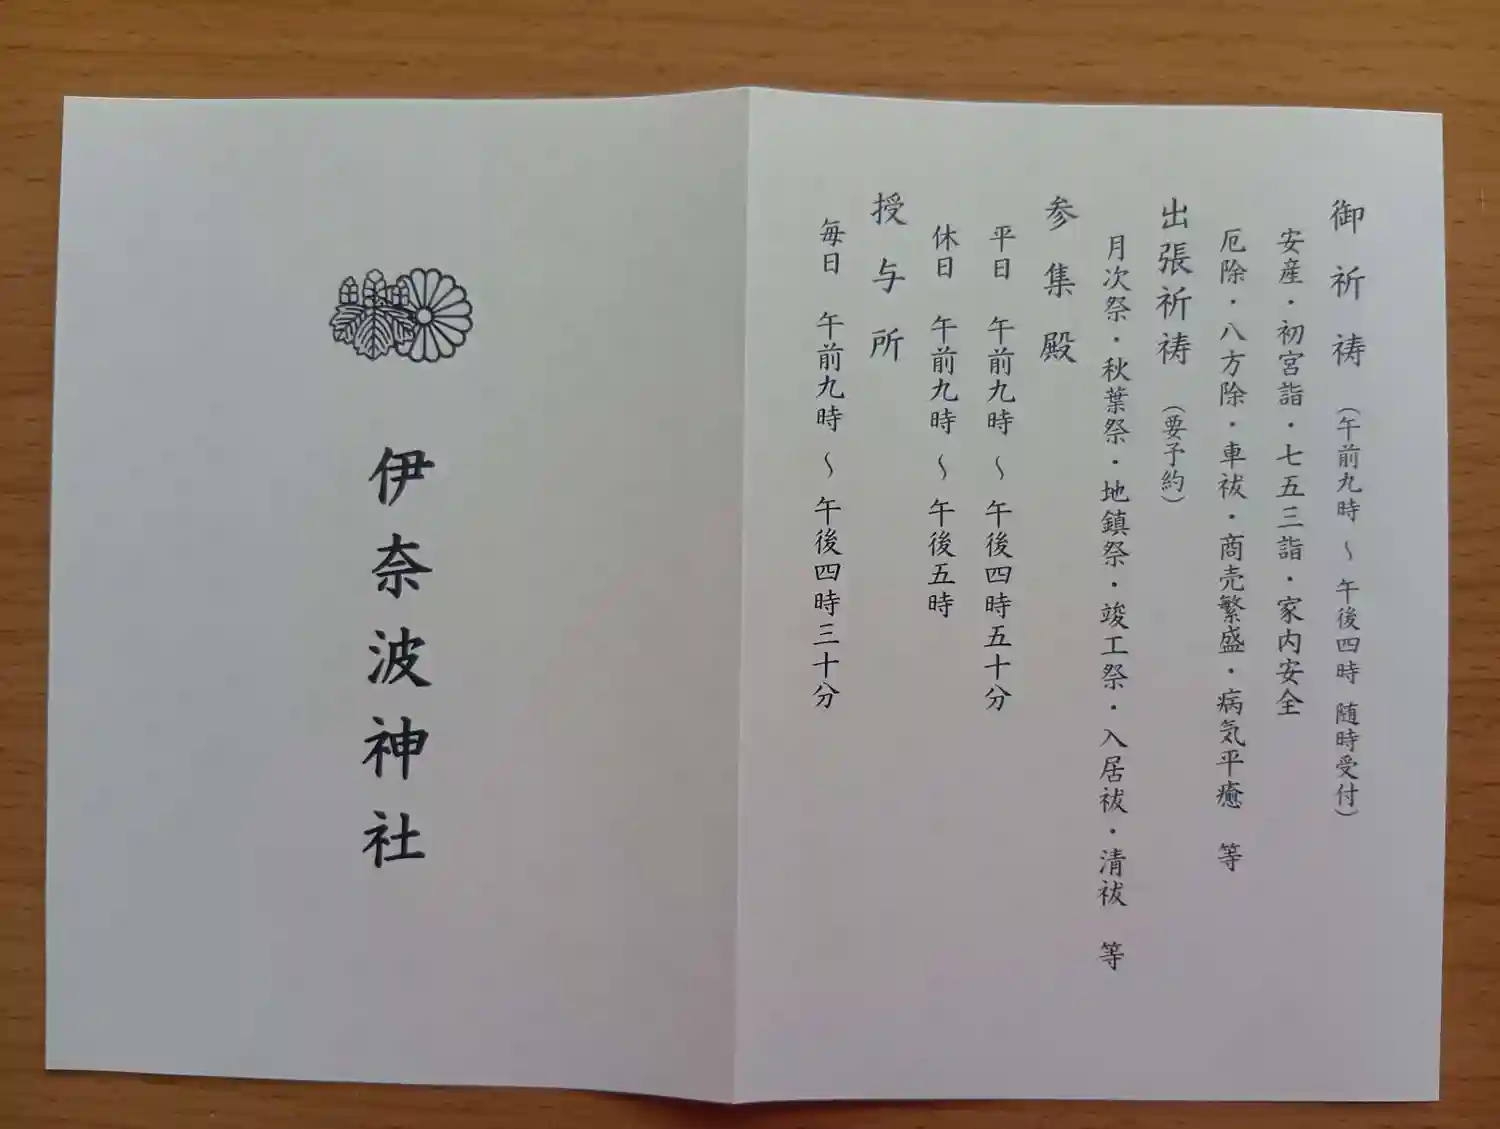 御祈祷 (午前九時 〜 午後四時 随時受付)
安産・初宮詣・七五三詣・家内安全
厄除・八方除・車祓・商売繁盛・病気平癒 等
出張祈祷 (要予約)
月次祭・秋葉祭・地鎮祭・竣工祭・入居祓・清祓 等
参集殿
平日 午前九時 〜 午後四時五十分
休日 午前九時 〜 午後五時
授与所
毎日 午前九時 〜 午後四時三十分
伊奈波神社